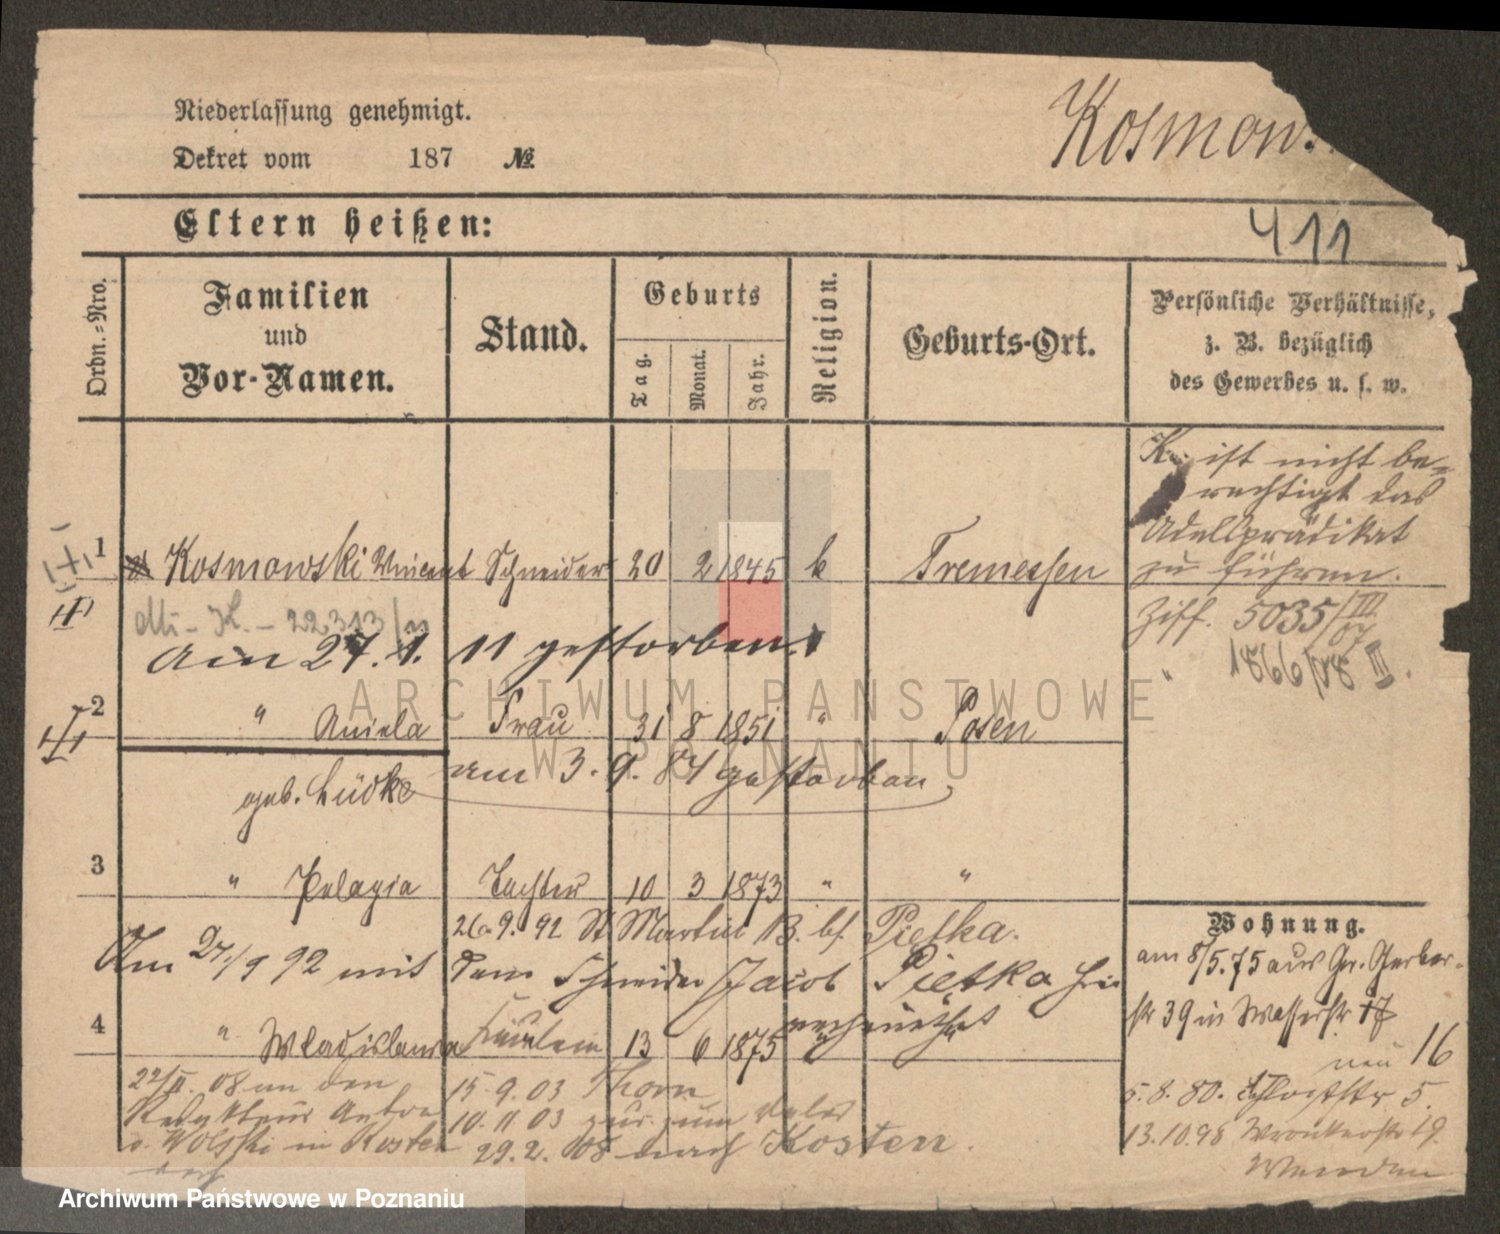 Niederlassung genehmigt.
Dekret vom 187 №
Kosmow.
Eltern heißen:
411
Ordn.-Nro.
Familien
und
Vor-Namen.
Stand.
Geburts
Tag.
Monat.
Jahr.
Religion.
Geburts-Ort.
Persönliche Verhältnisse,
z. B. bezüglich
des Gewerbes u. s. w.
K. ist nicht be-
rechtigt das
Adelsprädikat
zu führen.
Ziff. 5035/III 07
" 1866/08 III.
1 Kosmowski Vincent Schneider 20 2 1845 k Tremessen
22313
Am 27. 1. 11 gestorben.
2 " Aniela Frau 31 8 1851 " Posen
geb. Lüdke am 3. 9. 84 gestorben
3 " Pelagia Tochter 10 3 1873 " "
26. 9. 92 St Martin B. bf. Pietka.
Am 27/9 92 mit dem Schneider Jacob Pietka hier
verheirathet
4 " Wladislawa Fräulein 13 6 1875 "
22/II. 08 an den
Redakteur Anton
v. Wolski in Kosten
15. 9. 03 Thorn
10. 11 03 zur. zum Vater
29. 2. 08 nach Kosten.
Wohnung.
am 8/5.75 aus Gr. Gerber-
str 39 in Wasserstr 17
neu 16
5. 8. 80. Schloßstr 5.
13. 10. 98 Wronkerstr 19.
ARCHIWUM PAŃSTWOWE
W POZNANIU
Archiwum Państwowe w Poznaniu